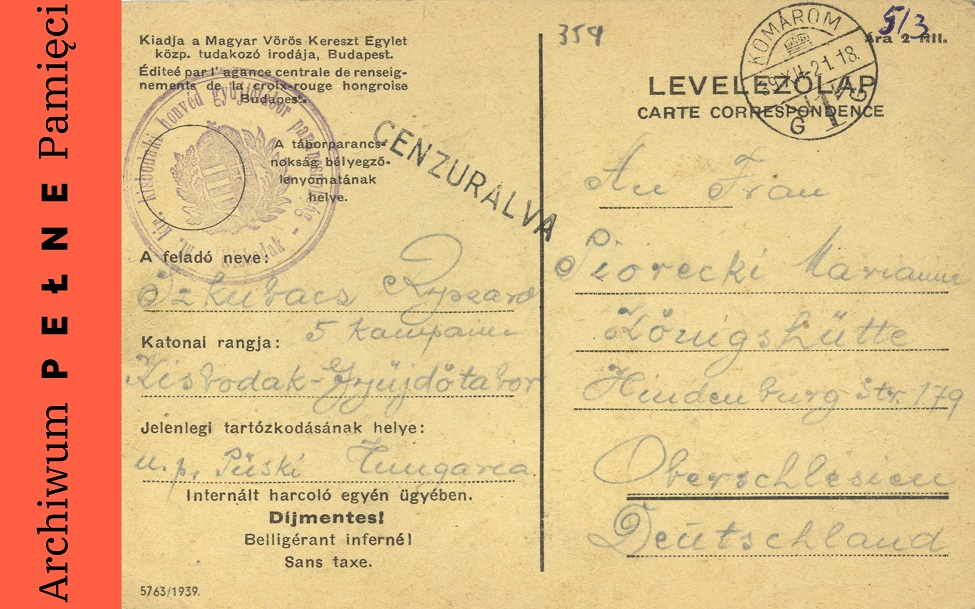 Archiwum PEŁNE Pamięci
Kiadja a Magyar Vörös Kereszt Egylet
közp. tudakozó irodája, Budapest.
Éditeé par l'agance centrale de renseig-
nements de la croix-rouge hongroise
Budapest.
kisbodaki honvéd gyűjtőtábor parancsnokság
Kisbodak
A táborparancs-
nokság bélyegző-
lenyomatának
helye.
CENZURALVA
A feladó neve:
Szkubacs Ryszard
5 kampania
Katonai rangja:
Kisbodak-Gyüjdőtabor
Jelenlegi tartózkodásának helye:
u.p. Püski Hungarea
Internált harcoló egyén ügyében.
Díjmentes!
Belligérant inferné!
Sans taxe.
5763/1939.
354
5/3
Ára 2 fill.
KOMÁROM
LEVELEZŐLAP
CARTE CORRESPONDENCE
An Frau
Piorecki Marianne
Königshütte
Hindenburg Str. 179
Oberschlesien
Deutschland